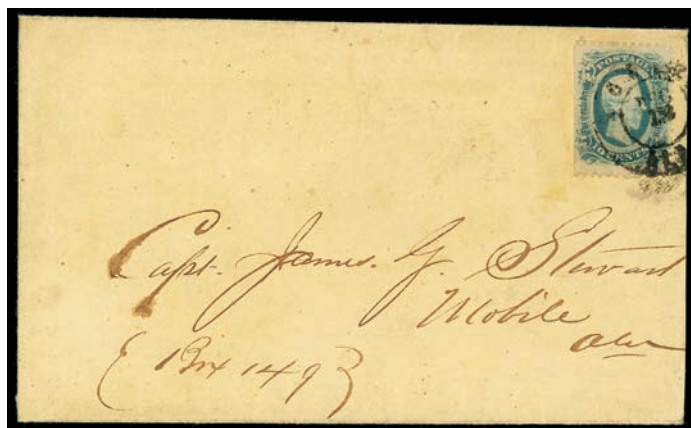 POSTAGE
CENTS
ALA
Capt. James. G. Stewart
Mobile
Ala
{ Box 1493 }